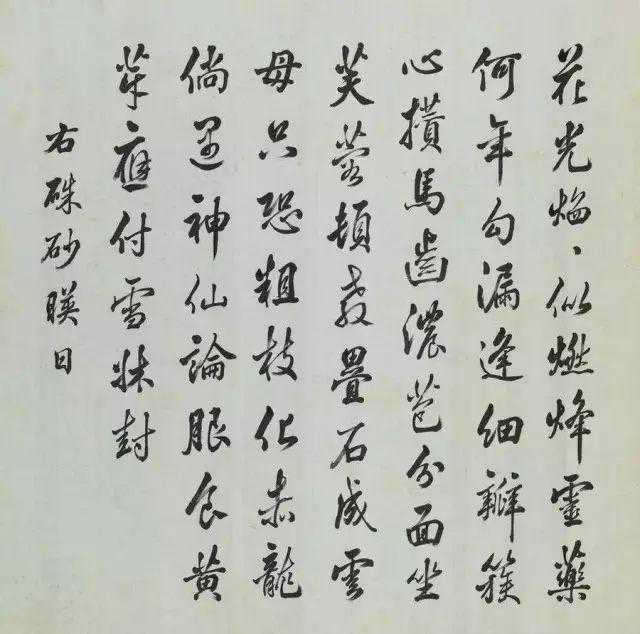 花光焰、似燃烽靈藥
何年勾漏逢細瓣簇
心攢馬齒濃苞分面坐
芙蓉頓教疊石成雲
母只恐粗枝化赤龍
倘遇神仙論服食黃
芽應付雪牀封
右硃砂暎日